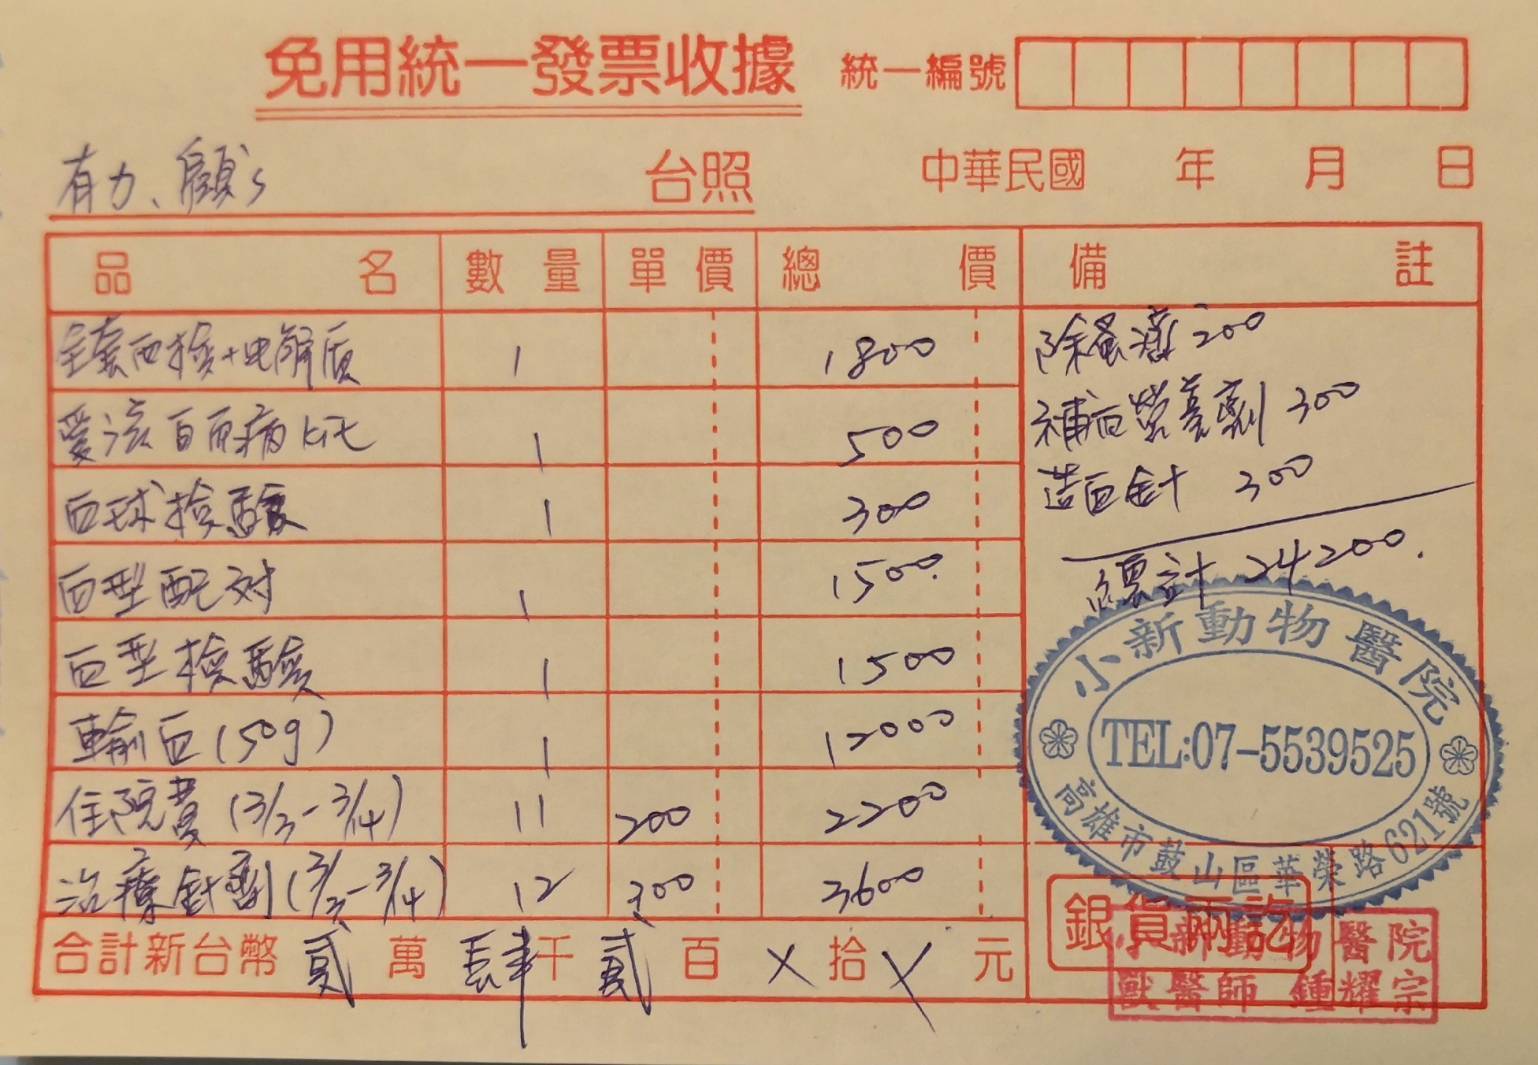 免用統一發票收據 統一編號
有力、顧's 台照 中華民國 年 月 日
品名 數量 單價 總價 備註
全套血檢+电解质 1 1800
愛滋白血病kit 1 500
血球檢驗 1 300
血型配对 1 1500
血型檢驗 1 1500
輸血(50g) 1 12000
住院費(3/3-3/14) 11 200 2200
治療針劑(3/3-3/14) 12 300 3600
合計新台幣 貳 萬 肆 千 貳 百 X 拾 X 元
除蚤滴 200
補血營養劑 300
造血針 300
總計 24200.
小新動物醫院
TEL:07-5539525
高雄市鼓山區華榮路621號
銀貨兩訖
小新動物醫院
獸醫師 鍾耀宗